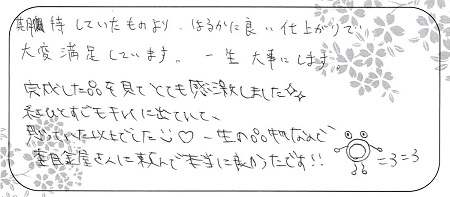 期待していたものより、はるかに良い仕上がりで
大変満足しています。一生大事にします。
完成した品を見てとても感激しました☆☆
ひとすじもキレイに出ていて、
思っていた以上でした♡一生の品物なので
屋さんに頼んで本当に良かったです!!
=3=3